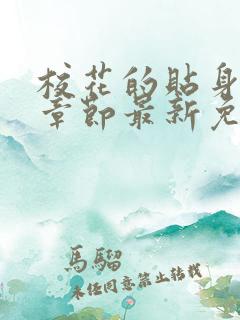 校花的貼身
章節最新免
馬騮
未經同意禁止轉載